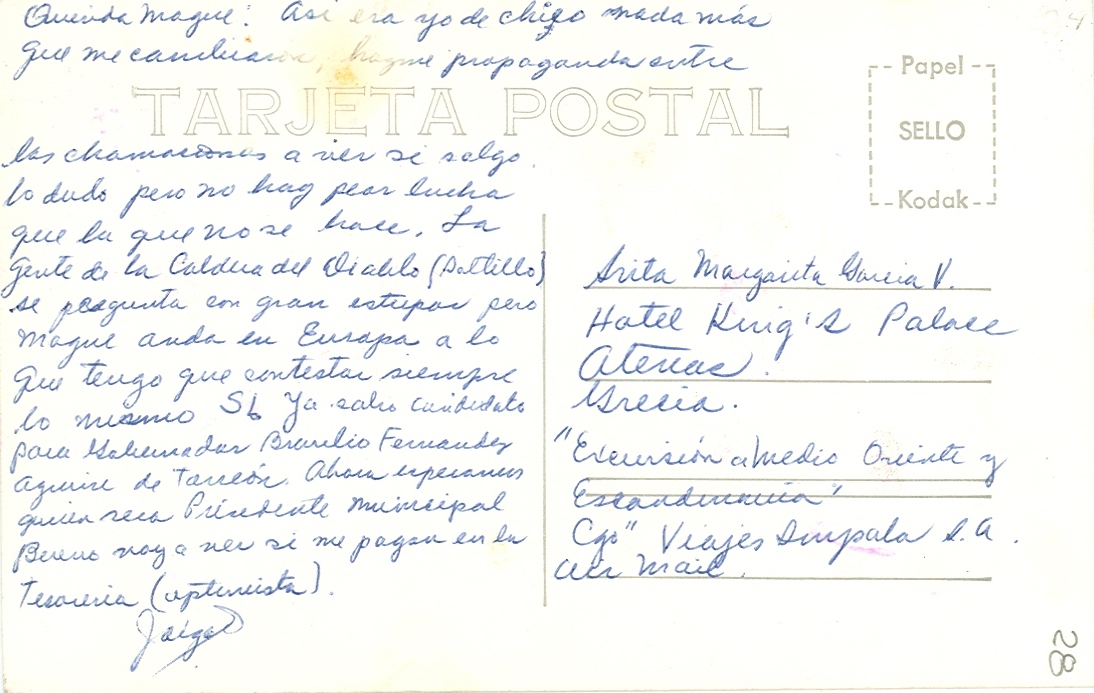 Querida Mague: Así era yo de chico nada más
que me cambiaron, hagme propaganda entre
TARJETA POSTAL
Papel
SELLO
Kodak
las chamaconas a ver si salgo.
lo dudo pero no hay peor lucha
que la que no se hace. La
gente de la Caldera del Diablo (Saltillo)
se pregunta con gran estupor pero
Mague anda en Europa a lo
que tengo que contestar siempre
lo mismo Si Ya salio candidato
para Gobernador Braulio Fernandez
Aguirre de Torreón. Ahora esperamos
quien sera Presidente Municipal
Bueno voy a ver si me pagan en la
Tesoreria (optimista).
Srita Margarita Garcia V.
Hotel King's Palace
Atenas.
Grecia.
"Excursión a Medio Oriente y
Escandinavia"
Cgo" Viajes Impala S.A.
Air Mail.
28